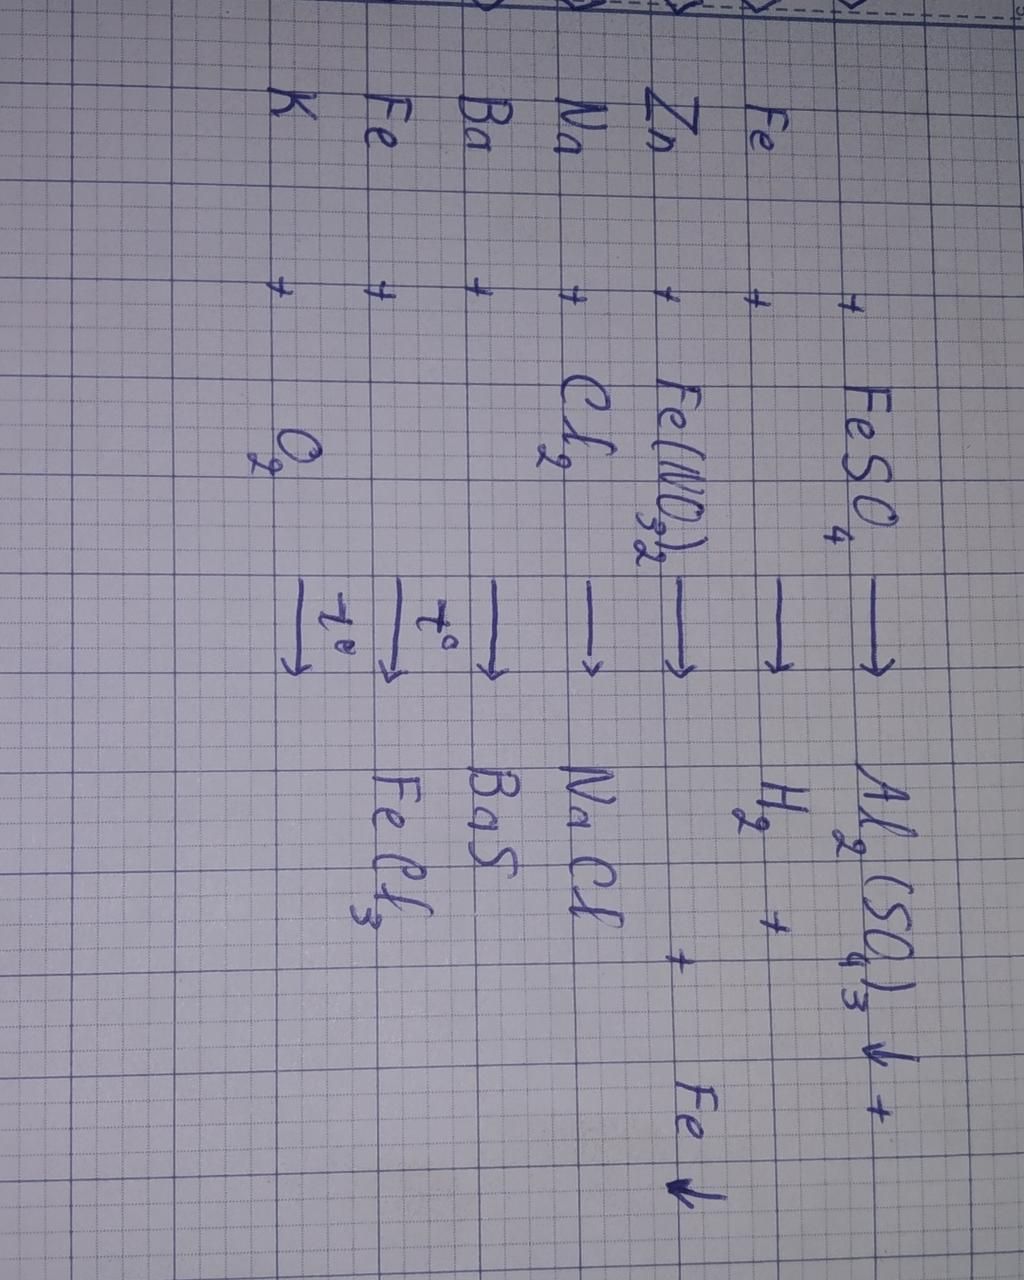 + FeSO₄ → Al₂(SO₄)₃ ↓ +
Fe + → H₂ +
Zn + Fe(NO₃)₂ → + Fe ↓
Na + Cl₂ → NaCl
Ba + → BaS
Fe + t° → FeCl₃
K + O₂ t° →